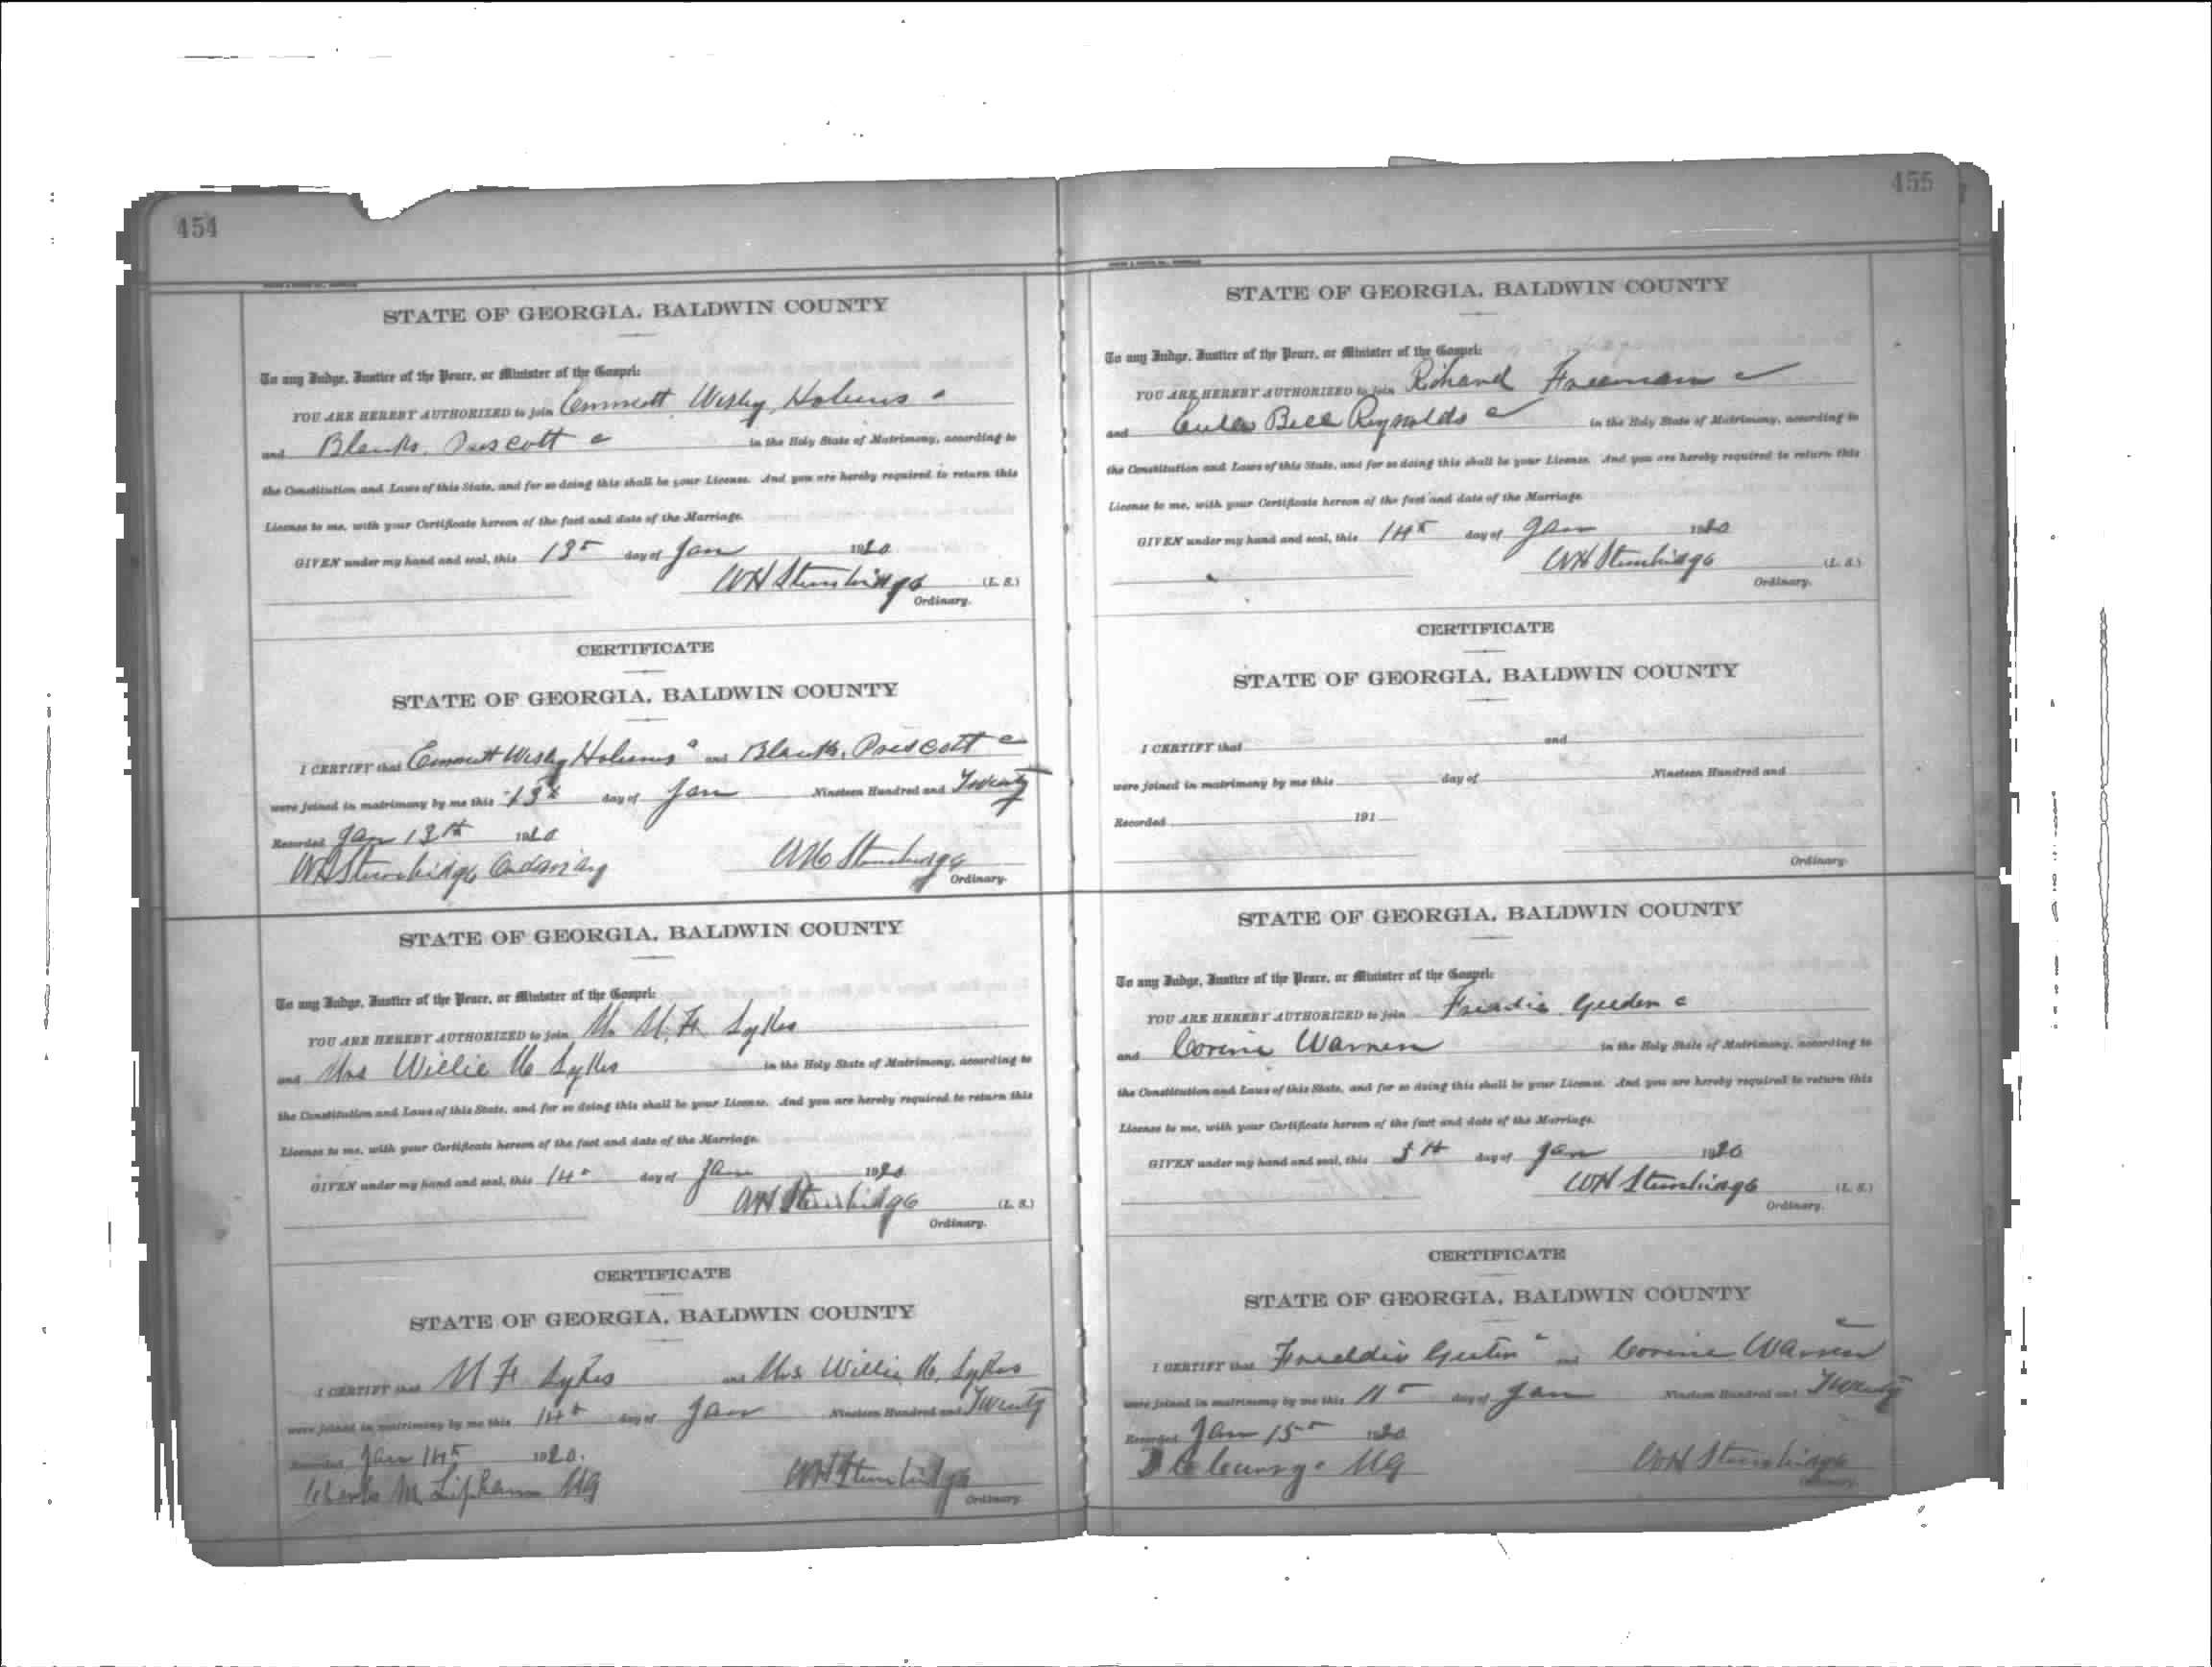 454
STATE OF GEORGIA, BALDWIN COUNTY
To any Judge, Justice of the Peace, or Minister of the Gospel:
YOU ARE HEREBY AUTHORIZED to join Emmett Wesly Holms c
and Prescott c in the Holy State of Matrimony, according to
the Constitution and Laws of this State, and for so doing this shall be your License. And you are hereby required to return this
License to me, with your Certificate hereon of the fact and date of the Marriage.
GIVEN under my hand and seal, this 13 day of Jan 1920
WH Stembridge (L. S.)
Ordinary.
CERTIFICATE
STATE OF GEORGIA, BALDWIN COUNTY
I CERTIFY that Emmett Wesly Holms c and Prescott c
were joined in matrimony by me this 13 day of Jan Nineteen Hundred and Twenty
Recorded Jan 13th 1920
WH Stembridge Ordinary WH Stembridge
Ordinary.
STATE OF GEORGIA, BALDWIN COUNTY
To any Judge, Justice of the Peace, or Minister of the Gospel:
YOU ARE HEREBY AUTHORIZED to join Sykes
and Mrs Willie Sykes in the Holy State of Matrimony, according to
the Constitution and Laws of this State, and for so doing this shall be your License. And you are hereby required to return this
License to me, with your Certificate hereon of the fact and date of the Marriage.
GIVEN under my hand and seal, this 14 day of Jan 1920
WH Stembridge (L. S.)
Ordinary.
CERTIFICATE
STATE OF GEORGIA, BALDWIN COUNTY
I CERTIFY that Sykes and Mrs Willie Sykes
were joined in matrimony by me this 14 day of Jan Nineteen Hundred and Twenty
Recorded Jan 14 1920.
M Lipham MG WH Stembridge
Ordinary.
455
STATE OF GEORGIA, BALDWIN COUNTY
To any Judge, Justice of the Peace, or Minister of the Gospel:
YOU ARE HEREBY AUTHORIZED to join Richard Freeman c
and Eula Bell Reynolds c in the Holy State of Matrimony, according to
the Constitution and Laws of this State, and for so doing this shall be your License. And you are hereby required to return this
License to me, with your Certificate hereon of the fact and date of the Marriage.
GIVEN under my hand and seal, this 14 day of Jan 1920
WH Stembridge (L. S.)
Ordinary.
CERTIFICATE
STATE OF GEORGIA, BALDWIN COUNTY
I CERTIFY that and
were joined in matrimony by me this day of Nineteen Hundred and
Recorded 191
Ordinary.
STATE OF GEORGIA, BALDWIN COUNTY
To any Judge, Justice of the Peace, or Minister of the Gospel:
YOU ARE HEREBY AUTHORIZED to join c
and Corine Warren in the Holy State of Matrimony, according to
the Constitution and Laws of this State, and for so doing this shall be your License. And you are hereby required to return this
License to me, with your Certificate hereon of the fact and date of the Marriage.
GIVEN under my hand and seal, this day of Jan 1920
WH Stembridge (L. S.)
Ordinary.
CERTIFICATE
STATE OF GEORGIA, BALDWIN COUNTY
I CERTIFY that Freddie c and Corine Warren c
were joined in matrimony by me this 11 day of Jan Nineteen Hundred and Twenty
Recorded Jan 15 1920
MG WH Stembridge
Ordinary.